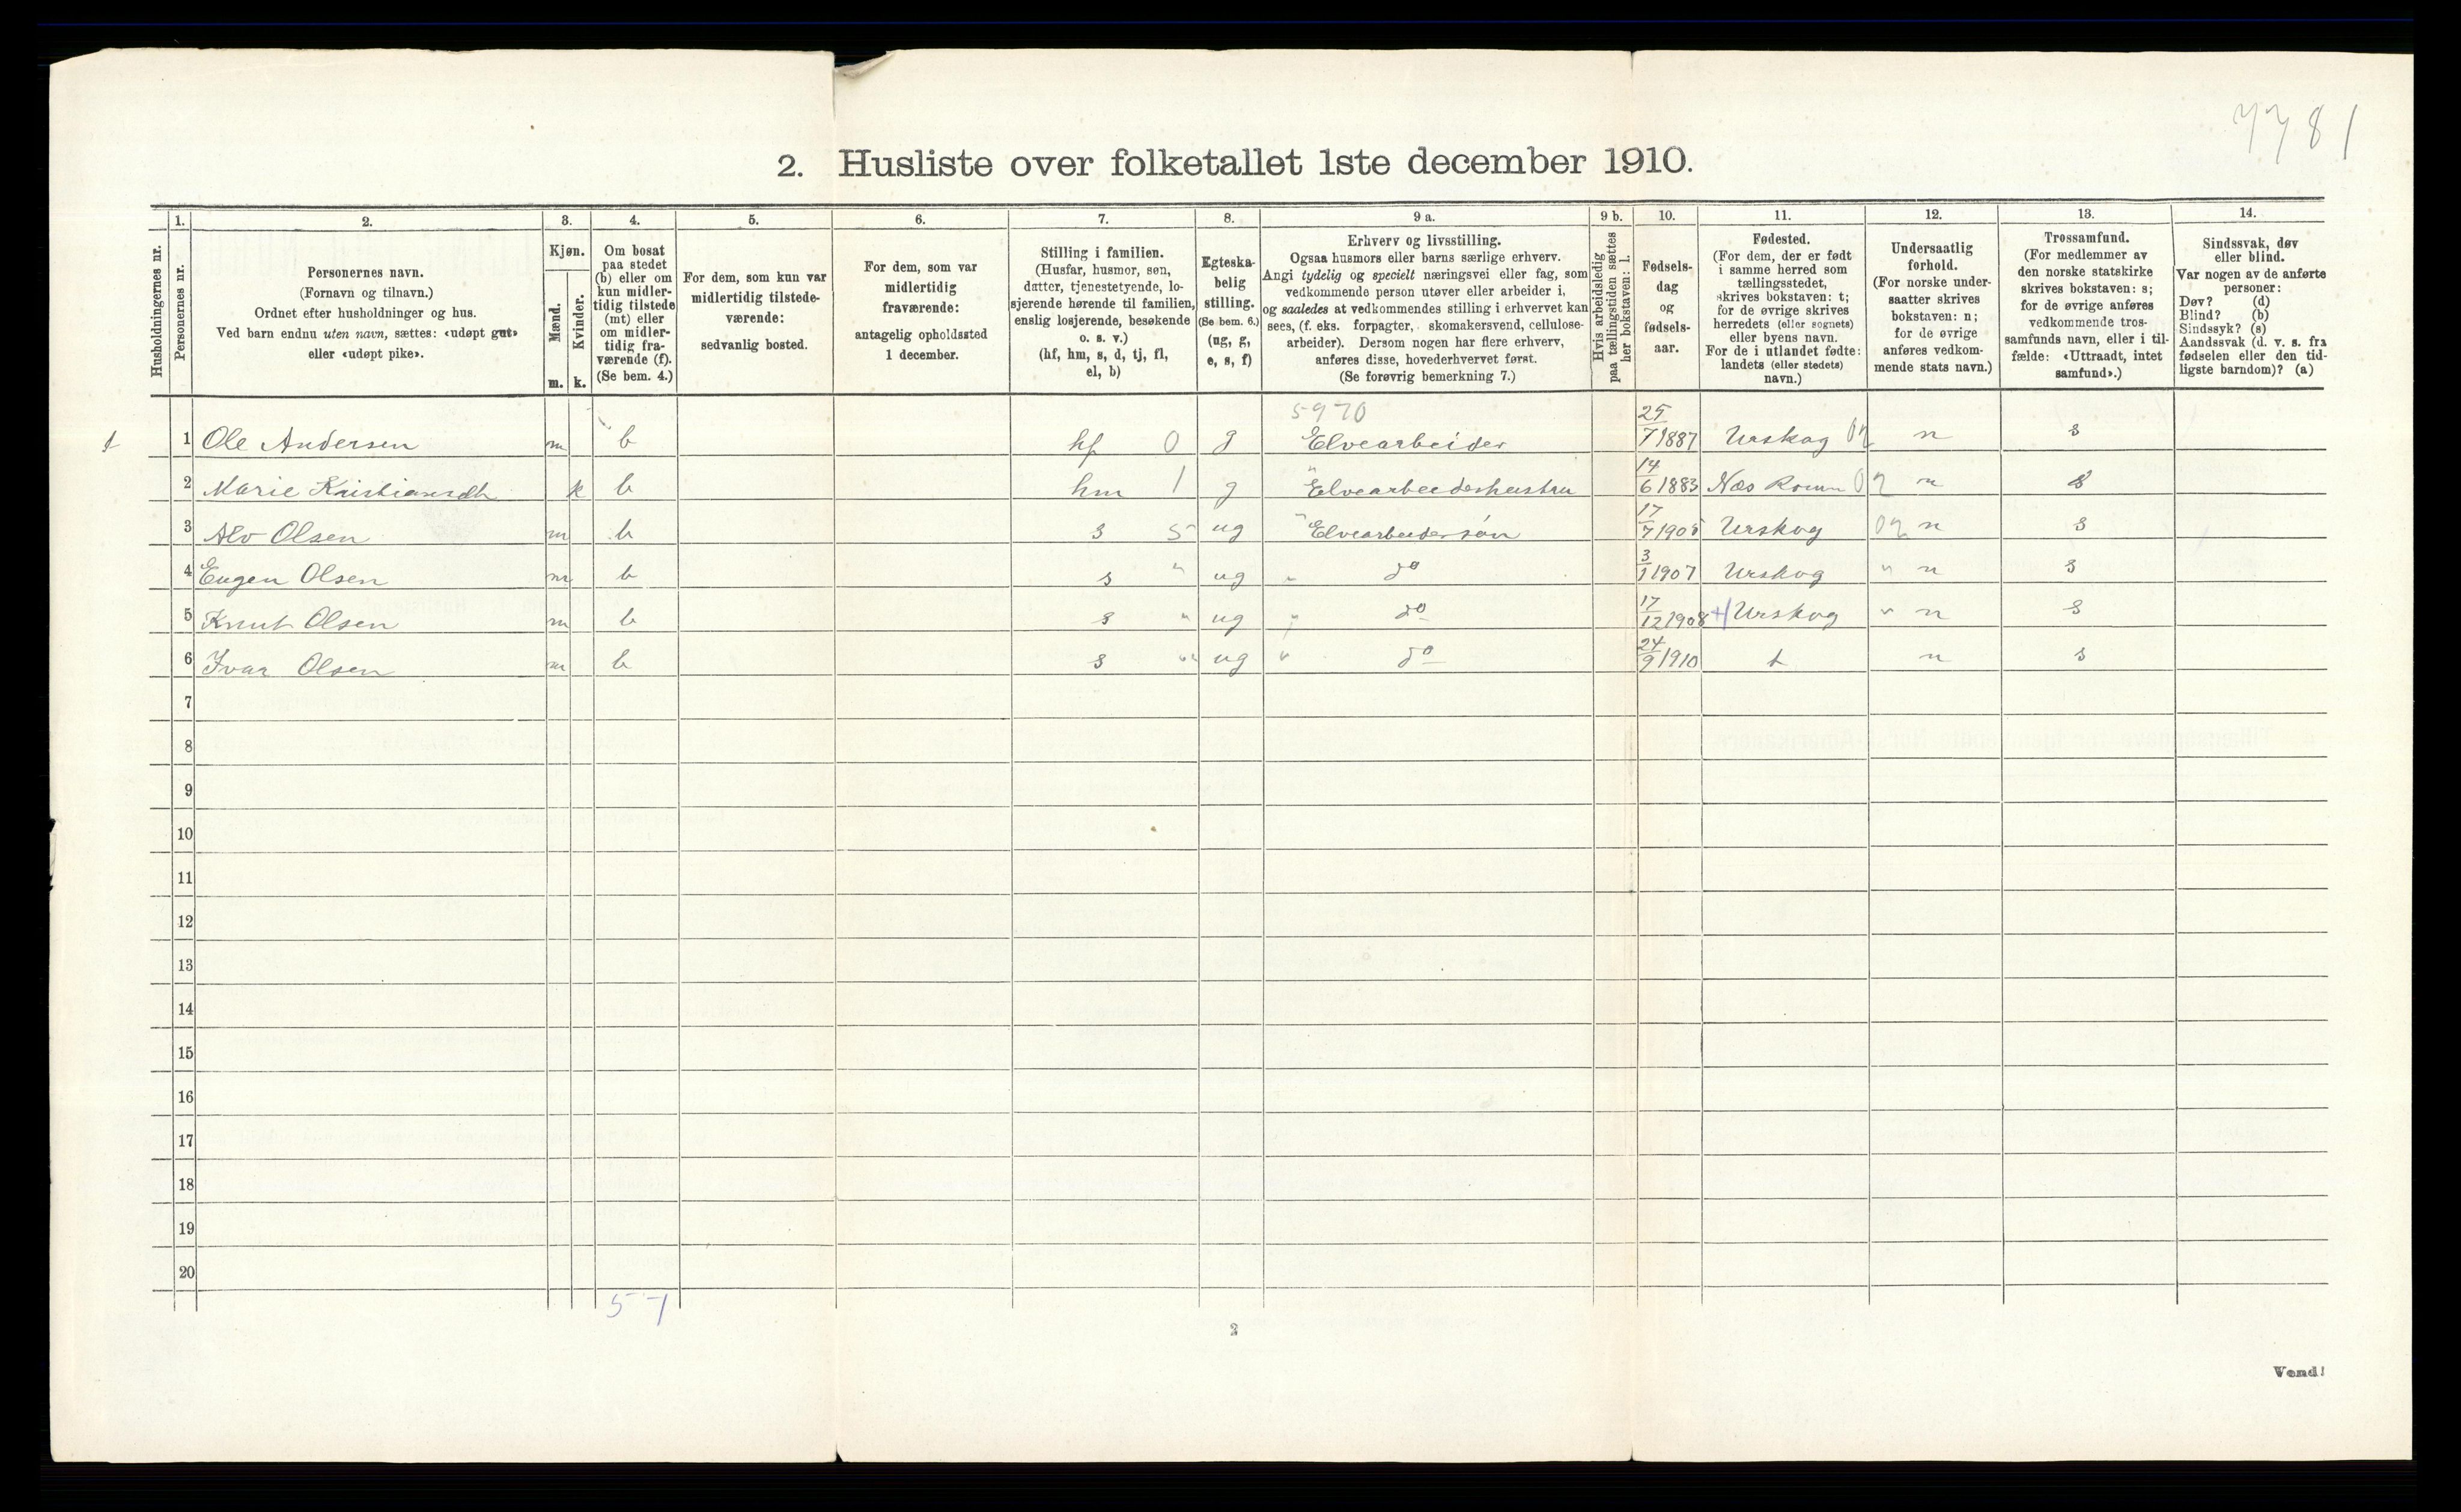 7781
2. Husliste over folketallet 1ste december 1910.
Husholdningernes nr.
1. Personernes nr.
2. Personernes navn.
(Fornavn og tilnavn.)
Ordnet efter husholdninger og hus.
Ved barn endnu uten navn, sættes: «udøpt gut»
eller «udøpt pike».
3. Kjøn.
Mænd. m.
Kvinder. k.
4. Om bosat
paa stedet
(b) eller om
kun midler-
tidig tilstede
(mt) eller
om midler-
tidig fra-
værende (f).
(Se bem. 4.)
5. For dem, som kun var
midlertidig tilstede-
værende:
sedvanlig bosted.
6. For dem, som var
midlertidig
fraværende:
antagelig opholdssted
1 december.
7. Stilling i familien.
(Husfar, husmor, søn,
datter, tjenestetyende, lo-
sjerende hørende til familien,
enslig losjerende, besøkende
o. s. v.)
(hf, hm, s, d, tj, fl,
el, b)
8. Egteska-
belig
stilling.
(Se bem. 6.)
(ug, g,
e, s, f)
9 a. Erhverv og livsstilling.
Ogsaa husmors eller barns særlige erhverv.
Angi tydelig og specielt næringsvei eller fag, som
vedkommende person utøver eller arbeider i,
og saaledes at vedkommendes stilling i erhvervet kan
sees, (f. eks. forpagter, skomakersvend, cellulose-
arbeider). Dersom nogen har flere erhverv,
anføres disse, hovederhvervet først.
(Se forøvrig bemerkning 7.)
9 b. Hvis arbeidsledig
paa tællingstiden sættes
her bokstaven: l.
10. Fødsels-
dag
og
fødsels-
aar.
11. Fødested.
(For dem, der er født
i samme herred som
tællingsstedet,
skrives bokstaven: t;
for de øvrige skrives
herredets (eller sognets)
eller byens navn.
For de i utlandet fødte:
landets (eller stedets)
navn.)
12. Undersaatlig
forhold.
(For norske under-
saatter skrives
bokstaven: n;
for de øvrige
anføres vedkom-
mende stats navn.)
13. Trossamfund.
(For medlemmer av
den norske statskirke
skrives bokstaven: s;
for de øvrige anføres
vedkommende tros-
samfunds navn, eller i til-
fælde: «Uttraadt, intet
samfund».)
14. Sindssvak, døv
eller blind.
Var nogen av de anførte
personer:
Døv? (d)
Blind? (b)
Sindssyk? (s)
Aandssvak (d. v. s. fra
fødselen eller den tid-
ligste barndom)? (a)
5970
1 1 Ole Andersen m b hf 0 g Elvearbeider 25/7 1887 Urskog 02 n s
2 Marie Kristiansdtr k b hm 1 g " Elvearbeiderhustru 14/6 1883 Næs Rom 02 n s
3 Alv Olsen m b s 5 ug " Elvearbeidersøn 17/7 1905 Urskog 02 n s
4 Eugen Olsen m b s " ug " do 3/1 1907 Urskog " n s
5 Knut Olsen m b s " ug " do 17/12 1908 Urskog " n s
6 Ivar Olsen m b s " ug " do 24/9 1910 t n s
7
8
9
10
11
12
13
14
15
16
17
18
19
20
5-1
2
Vend!